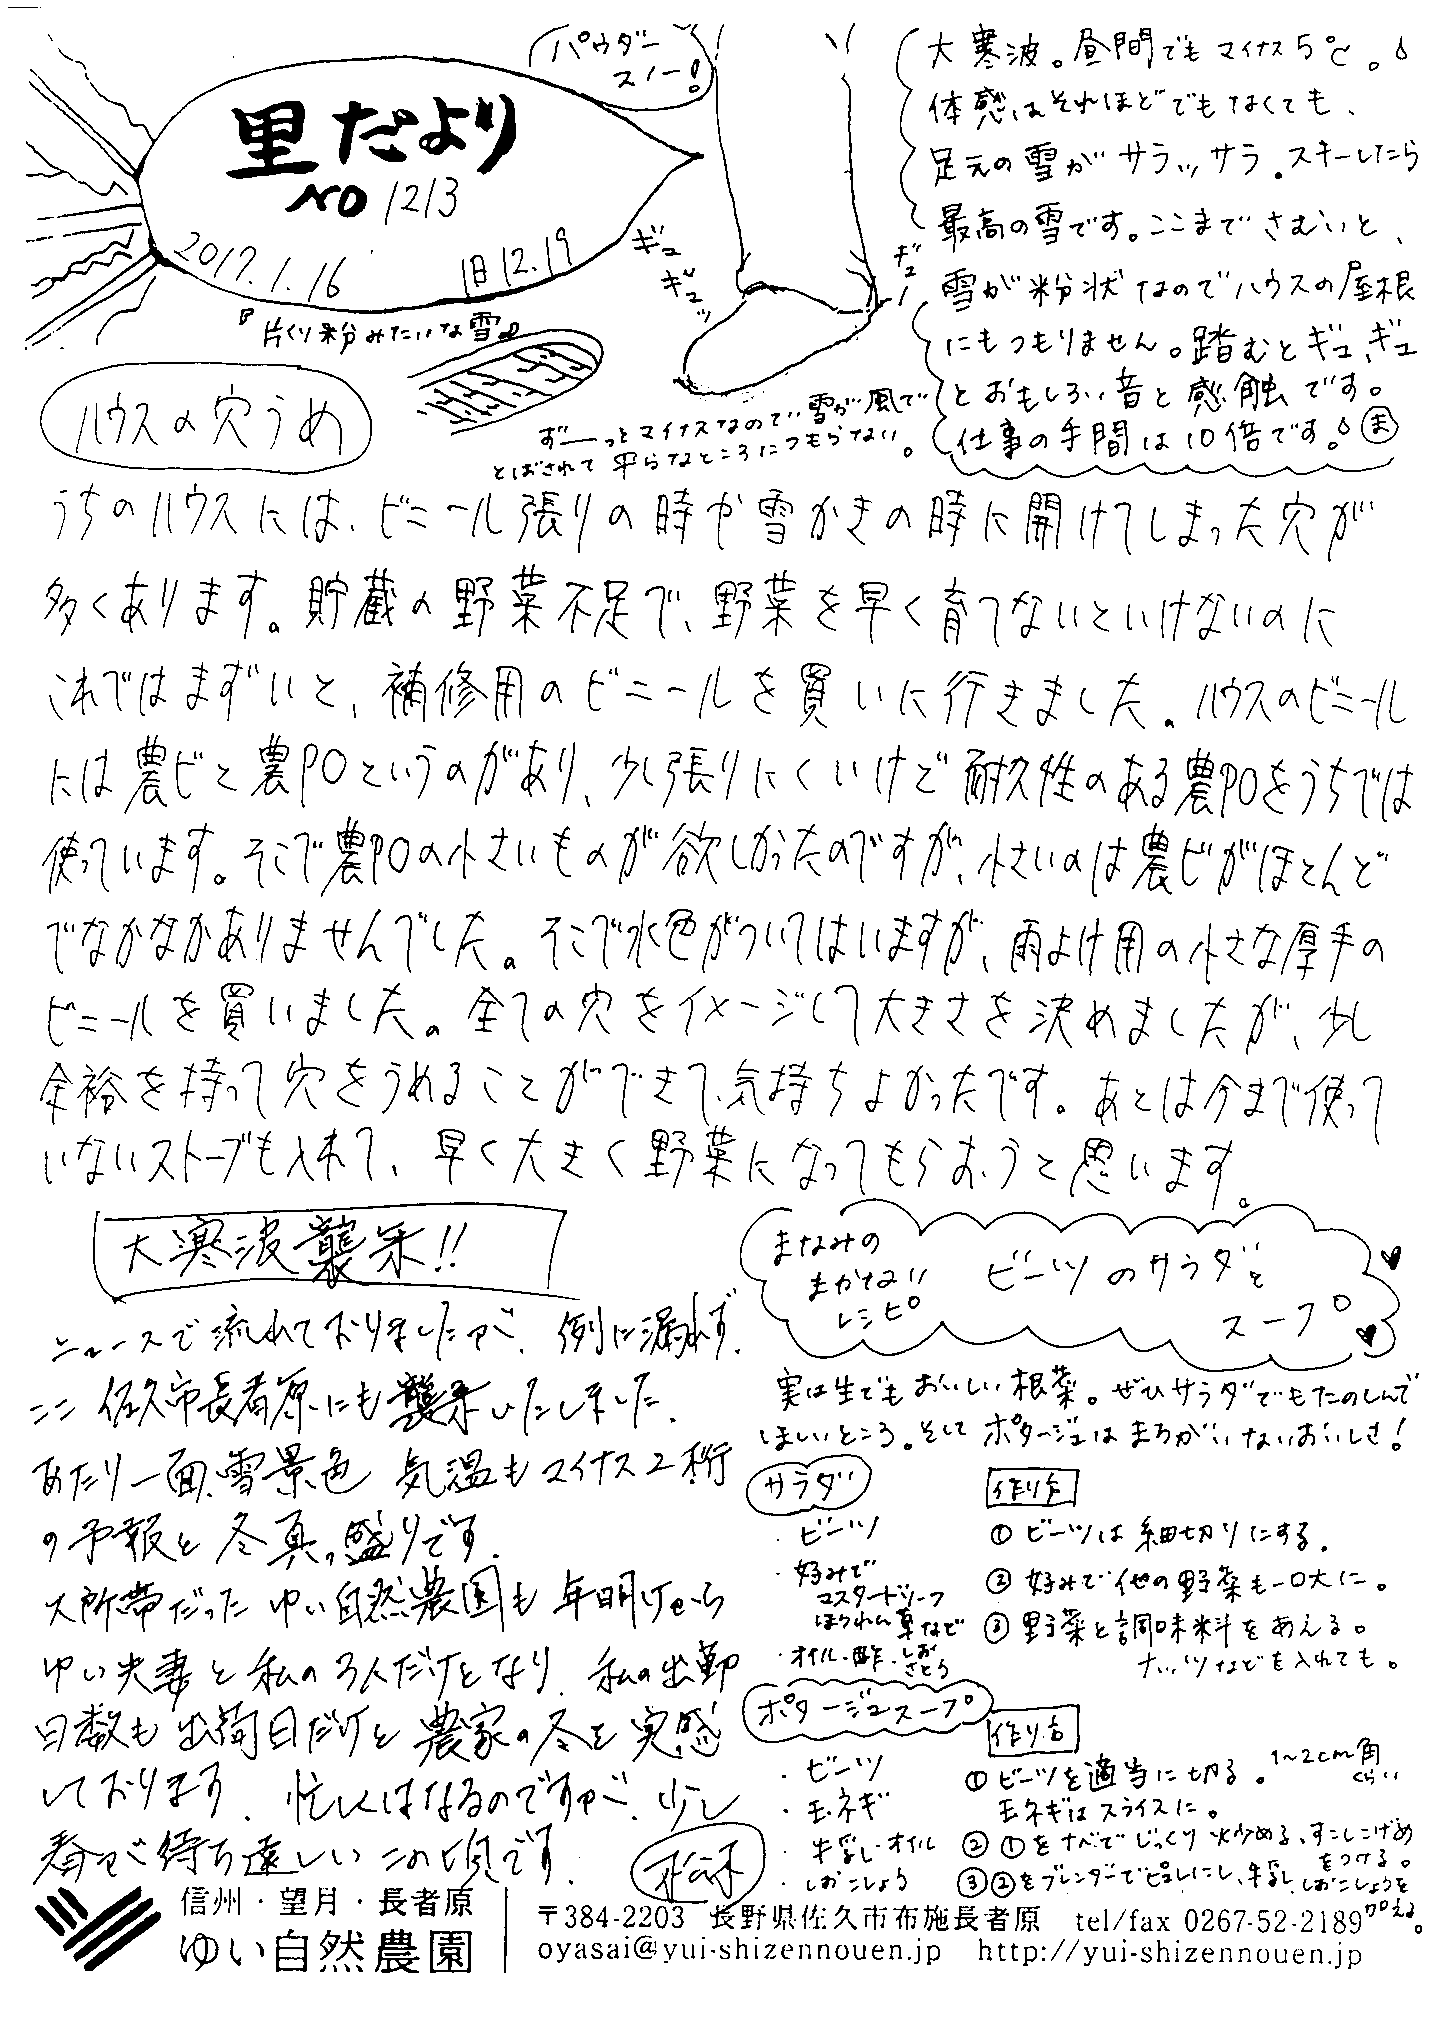 里だより
NO 1213
2017.1.16 旧12.19
『片くり粉みたいな雪』
パウダー
スノー!
ギュ
ギュッ
ギュー
大寒波。昼間でもマイナス5℃。
体感はそれほどでもなくても、
足元の雪がサラッサラ。スキーしたら
最高の雪です。ここまでさむいと、
雪が粉状なのでハウスの屋根
にもつもりません。踏むとギュ、ギュ
とおもしろい音と感触です。
仕事の手間は10倍です。ま
ずーーっとマイナスなので、雪が風で
とばされて平らなところにつもらない。
ハウスの穴うめ
うちのハウスには、ビニール張りの時や雪かきの時に開けてしまった穴が
多くあります。貯蔵の野菜不足で、野菜を早く育てないといけないのに
これではまずいと、補修用のビニールを買いに行きました。ハウスのビニール
には農ビと農POというのがあり、少し張りにくいけど耐久性のある農POをうちでは
使っています。そこで農POの小さいものが欲しかったのですが、小さいのは農ビがほとんど
でなかなかありませんでした。そこで水色がついてはいますが、雨よけ用の小さな厚手の
ビニールを買いました。全ての穴をイメージして大きさを決めましたが、少し
余裕を持って穴をうめることができて、気持ちよかったです。あとは今まで使って
いないストーブも入れて、早く大きく野菜になってもらおうと思います。
大寒波襲来!!
ニュースで流れておりましたが、例に漏れず、
ここ佐久市長者原にも襲来いたしました。
あたり一面、雪景色 気温もマイナス2桁
の予報と冬真っ盛りです。
大所帯だったゆい自然農園も年明けから
ゆい夫妻と私の3人だけとなり、私の出勤
日数も出荷日だけと農家の冬を実感
しております。忙しくはなるのですが、少し
春が待ち遠しいこの頃です。
まなみの
まかない
レシピ
ビーツのサラダと
スープ
実は生でもおいしい根菜。ぜひサラダでもたのしんで
ほしいところ。そしてポタージュはまちがいないおいしさ!
サラダ
・ビーツ
・好みで
マスタードリーフ
ほうれん草など
・オイル・酢・しお
さとう
作り方
① ビーツは細切りにする。
② 好みで他の野菜も一口大に。
③ 野菜と調味料をあえる。
ナッツなどを入れても。
ポタージュスープ
・ビーツ
・玉ネギ
・牛乳・オイル
・しおこしょう
作り方
① ビーツを適当に切る。1~2cm角
くらい
玉ネギはスライスに。
② ①をナベでじっくり炒める、すこしこげめ
をつける。
③ ②をブレンダーでピュレにし、牛乳、しおこしょうを
加える。
信州・望月・長者原
ゆい自然農園
〒384-2203 長野県佐久市布施長者原 tel/fax 0267-52-2189
oyasai@yui-shizennouen.jp http://yui-shizennouen.jp